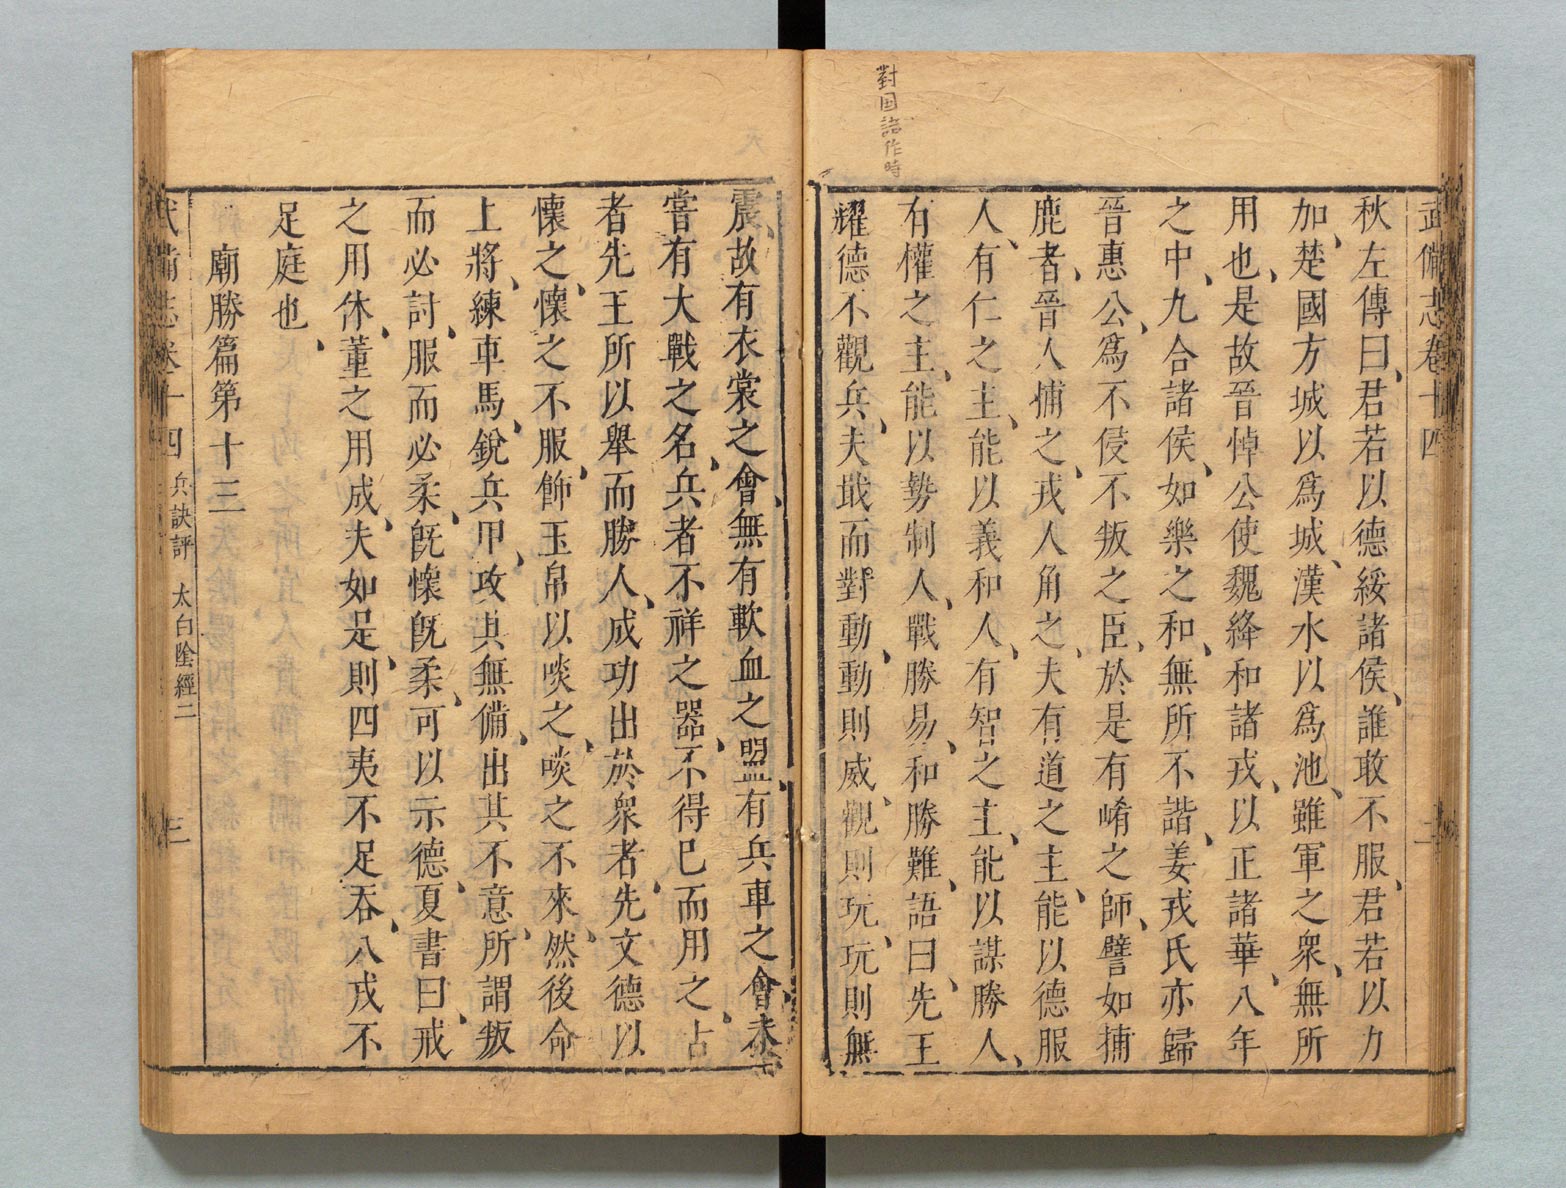 對国語作時
武備志卷十四
二
秋左傳曰君若以德綏諸侯誰敢不服君若以力
加楚國方城以爲城漢水以爲池雖軍之衆無所
用也是故晉悼公使魏絳和諸戎以正諸華八年
之中九合諸侯如樂之和無所不諧姜戎氏亦歸
晉惠公爲不侵不叛之臣於是有崤之師譬如捕
鹿者晉人捕之戎人角之夫有道之主能以德服
人有仁之主能以義和人有智之主能以謀勝人
有權之主能以勢制人戰勝易和勝難語曰先王
耀德不觀兵夫戢而對動動則威觀則玩玩則無
震故有衣裳之會無有軟血之盟有兵車之會未
嘗有大戰之名兵者不祥之器不得已而用之占
者先王所以舉而勝人成功出於衆者先文德以
懷之懷之不服飾玉帛以啖之啖之不來然後命
上將練車馬銳兵甲攻其無備出其不意所謂叛
而必討服而必柔旣懷旣柔可以示德夏書曰戒
之用休董之用威夫如是則四夷不足吞八戎不
足庭也
廟勝篇第十三
武備志卷十四 兵訣評 太白陰經二
三